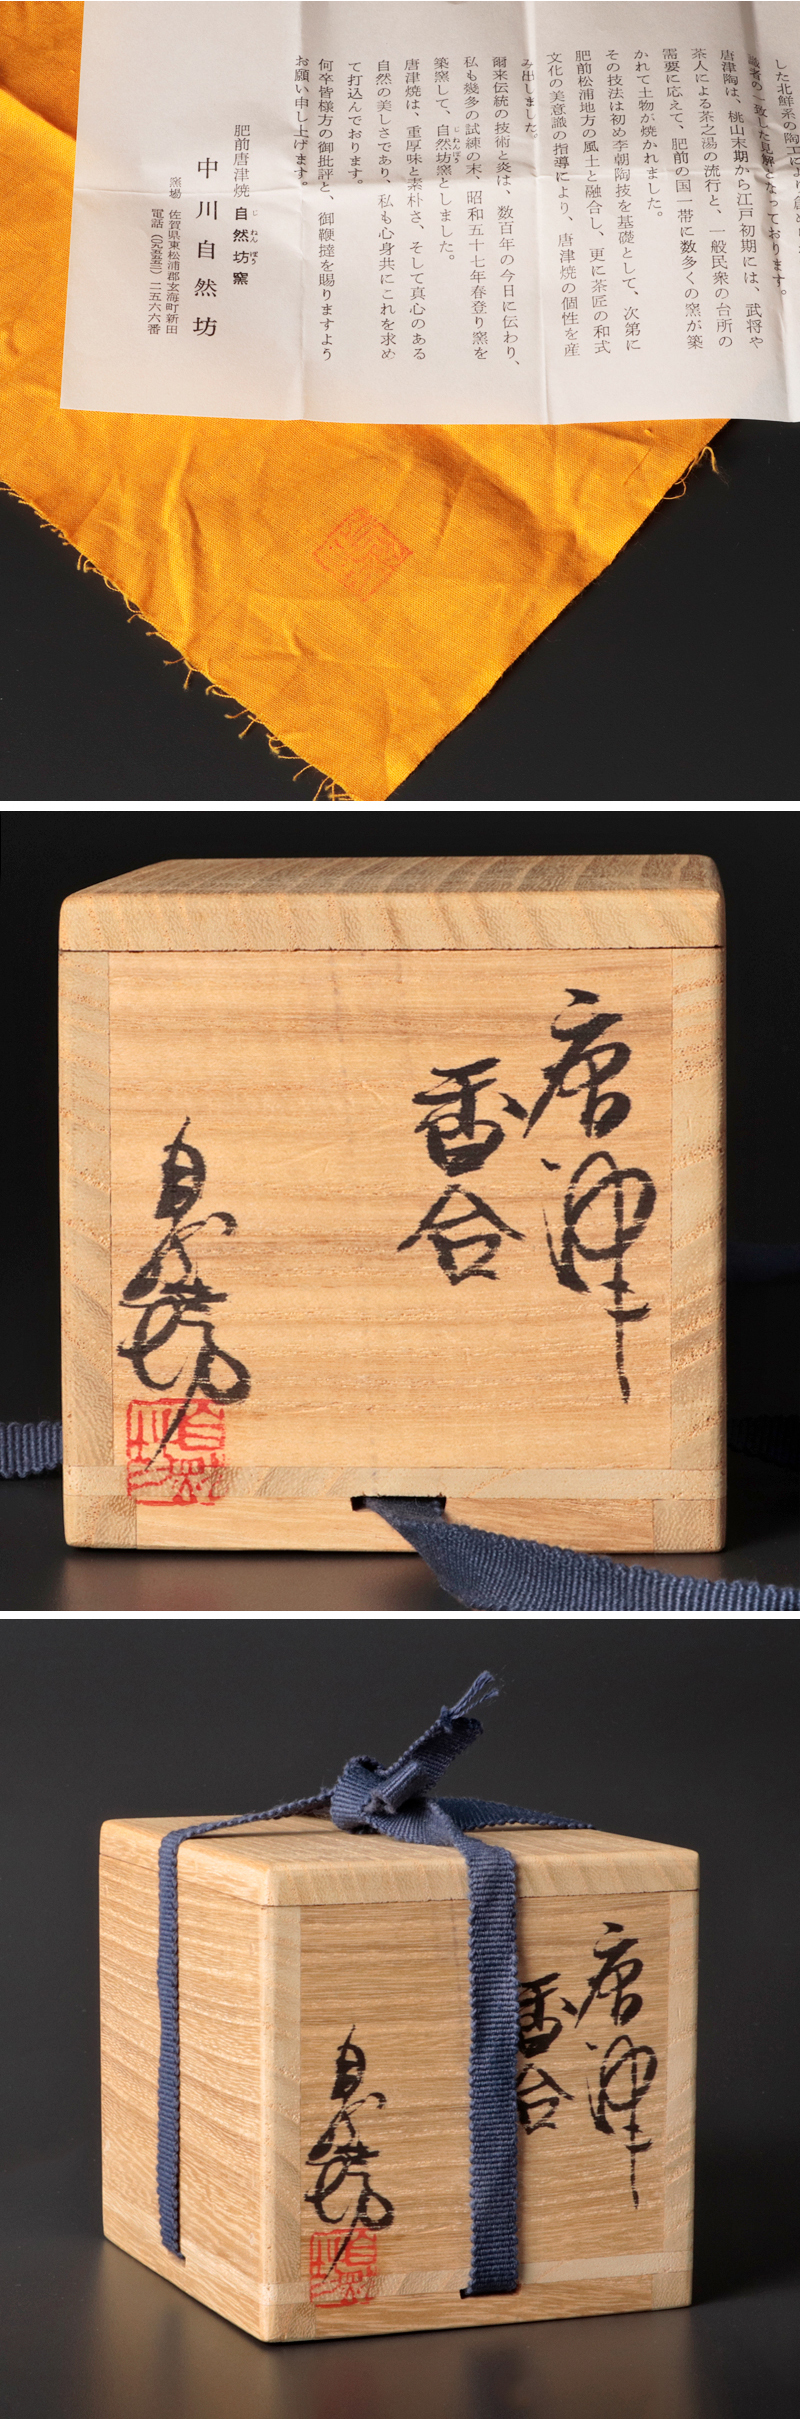 した北鮮系の陶工により創められ
識者の一致した見解となっております。
唐津陶は、桃山末期から江戸初期には、武将や
茶人による茶之湯の流行と、一般民衆の台所の
需要に応えて、肥前の国一帯に数多くの窯が築
かれて土物が焼かれました。
その技法は初め李朝陶技を基礎として、次第に
肥前松浦地方の風土と融合し、更に茶匠の和式
文化の美意識の指導により、唐津焼の個性を産
み出しました。
爾来伝統の技術と炎は、数百年の今日に伝わり、
私も幾多の試練の末、昭和五十七年春登り窯を
築窯して、自然坊窯としました。
じねんぼう
唐津焼は、重厚味と素朴さ、そして真心のある
自然の美しさであり、私も心身共にこれを求め
て打込んでおります。
何卒皆様方の御批評と、御鞭撻を賜りますよう
お願い申し上げます。
肥前唐津焼 自然坊窯
じねんぼう
中川自然坊
窯場 佐賀県東松浦郡玄海町新田
電話(〇九五五五)二五六六番
唐津
香合
自然坊
自然坊
唐津
香合
自然坊
自然坊